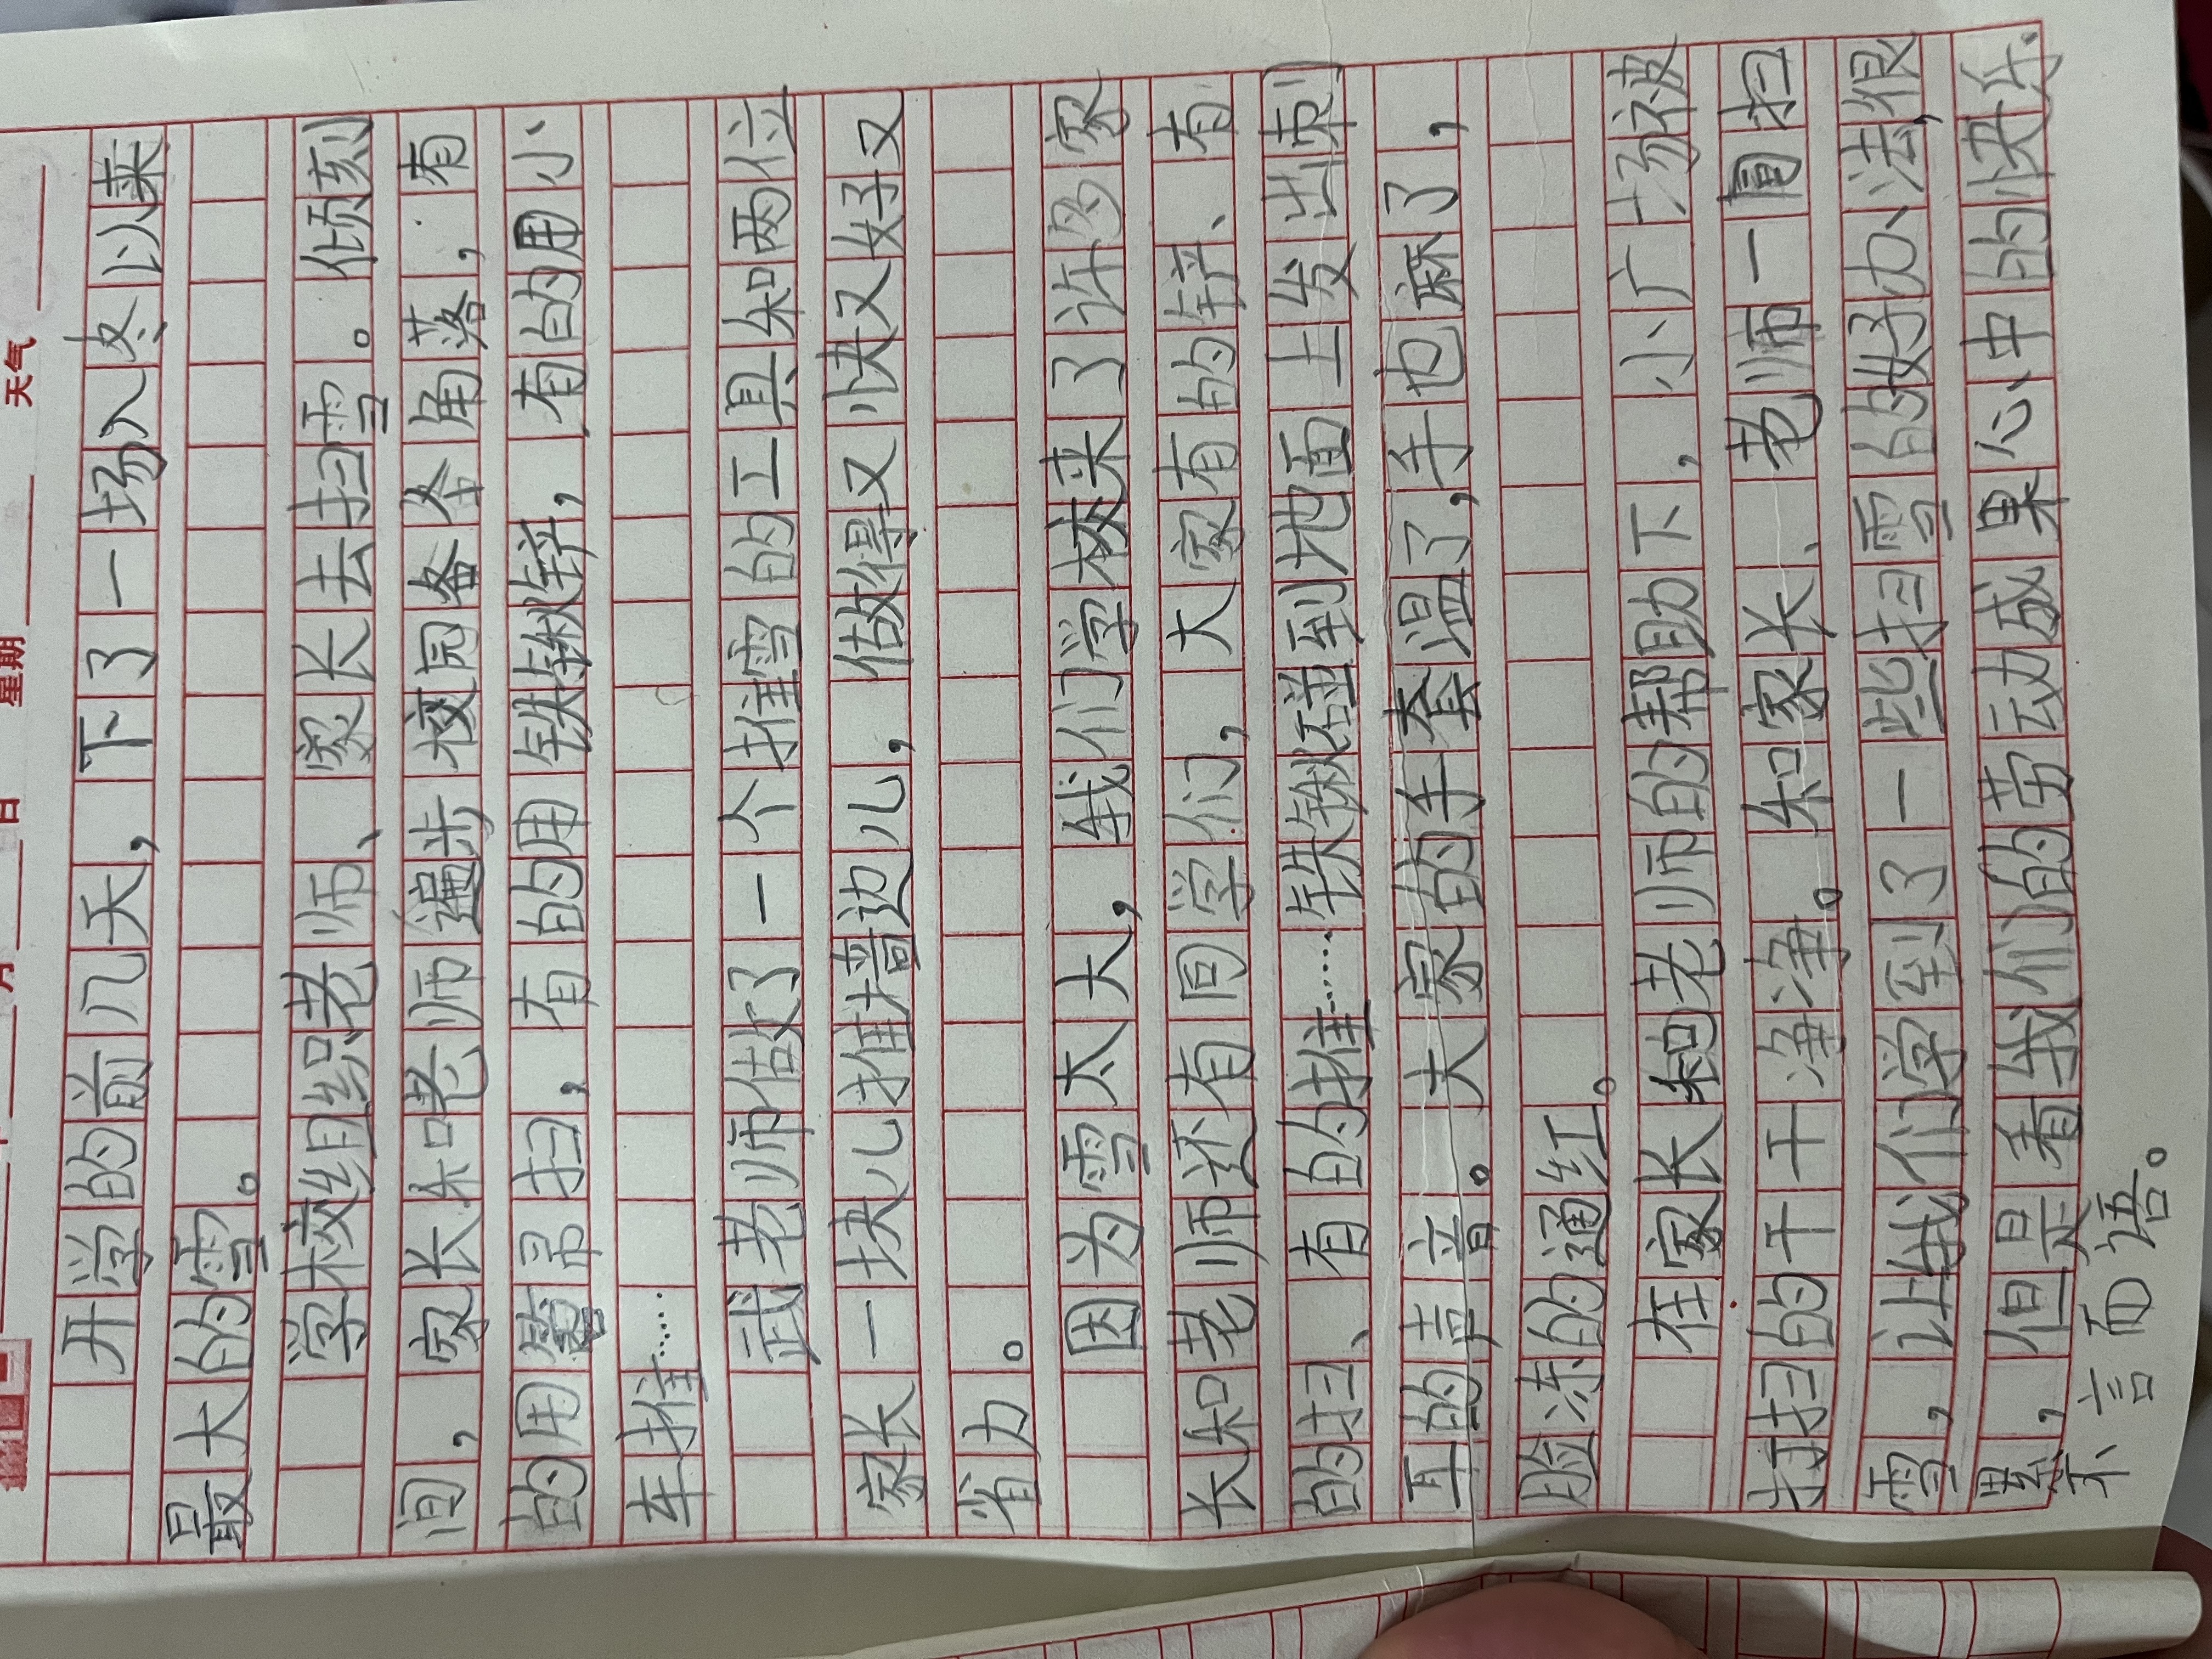 月 日 星期 天气
开学的前几天，下了一场入冬以来
最大的雪。
学校组织老师、家长去扫雪。倾刻
间，家长和老师遍步校园各个角落，有
的用笤帚扫，有的用铁锨铲，有的用小
车推……
武老师做了一个推雪的工具和两位
家长一块儿推墙边儿，做得又快又好又
省力。
因为雪太大，我们学校来了许多家
长和老师还有同学们，大家有的铲、有
的扫、有的推……铁锨碰到地面上发出刺
耳的声音。大家的手套湿了，手也麻了，
脸冻的通红。
在家长和老师的帮助下，小广场被
打扫的干干净净。和家长、老师一同扫
雪，让我们学到了一些扫雪的好办法，很
累，但是看我们的劳动成果心中的快乐
不言而语。